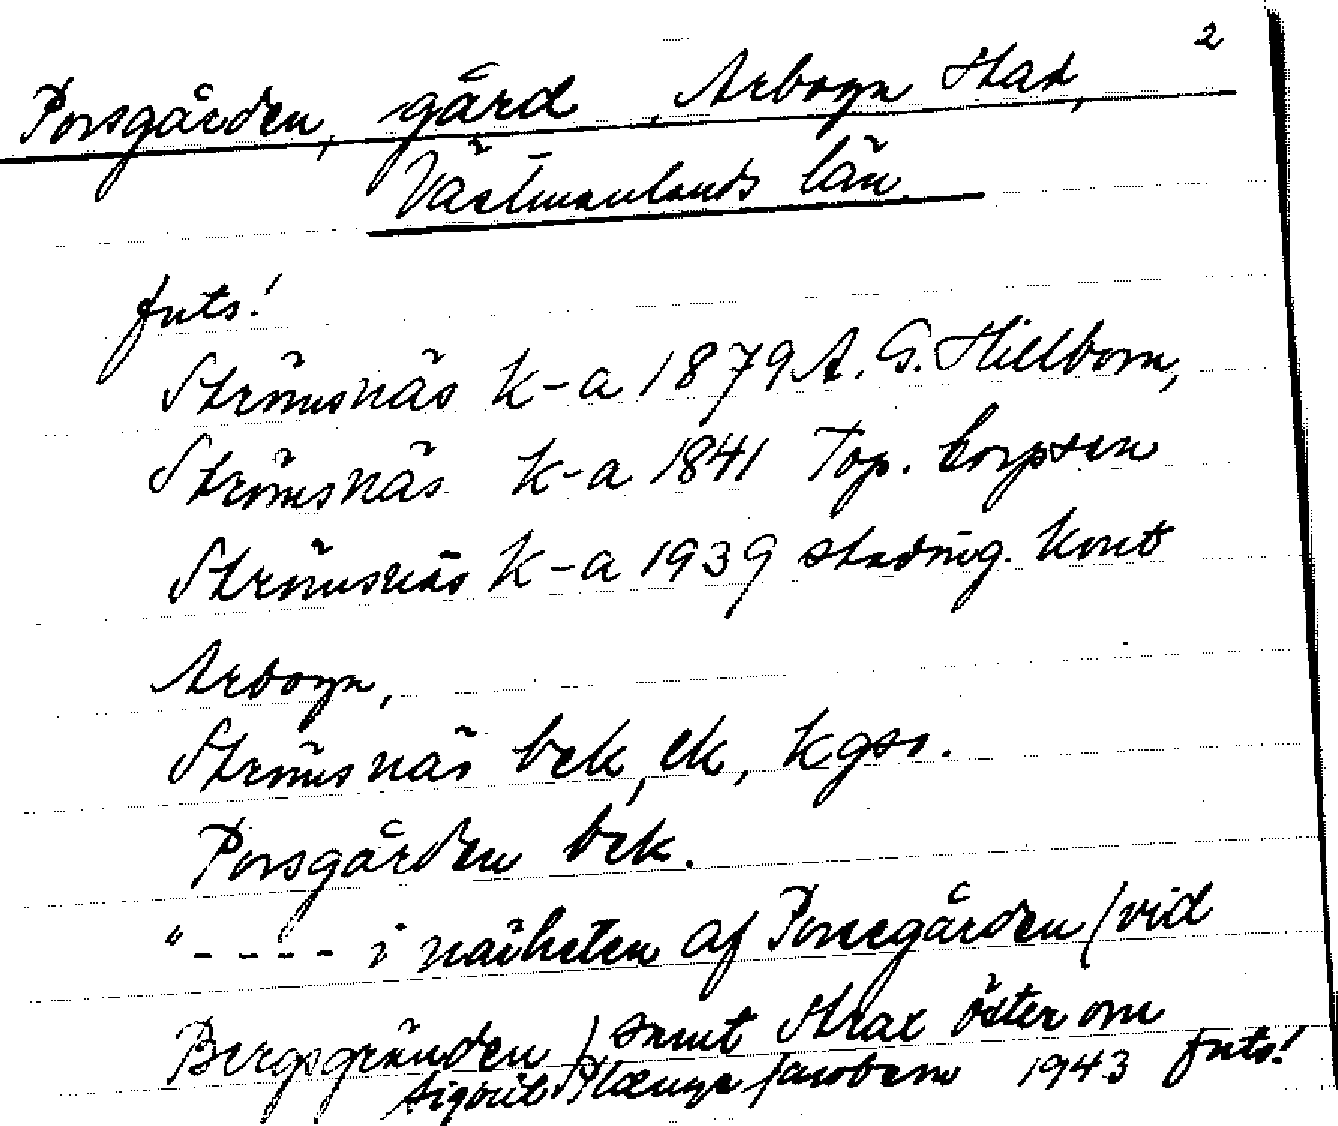 2
Porsgården, gård, Arboga stad,
Västmanlands län
forts!
Strömsnäs k-a 1879 A. G. Hillbom,
Strömsnäs k-a 1841 Top. Corpsen
Strömsnäs k-a 1939 stadsing. kont
Arboga,
Strömsnäs bek, ek, kgsr.
Porsgården bek.
"---- i närheten af Porsegården (vid
Bergsgränden) samt strax öster om
Sigrid Jacobson 1943 forts!